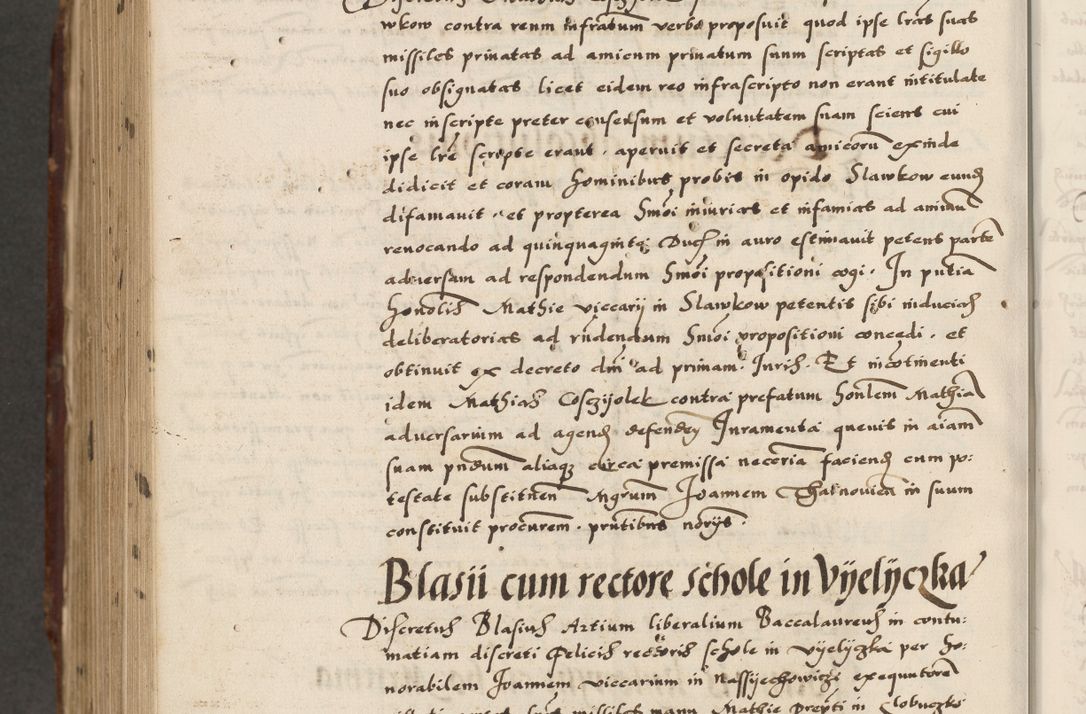 wkow contra reum infrascriptum verbo proposuit quod ipse lras suas
missiles priuatas ad amicum priuatum suum scriptas et sigillo
suo obsignatas licet eidem reo infrascripto non erant intitulate
nec inscripte preter consensum et voluntatem suam sciens cui
ipse lre scripte erant . aperuit et secreta amicorū exinde
didicit et coram hominibus probis in opido Slawkow eund
difamauit . et propterea Smoi iniurias et infamias ad animū
reuocando ad quinquaginta Duc in auro estimauit petens parte
aduersam ad respondendum Smoi propositioni cogi . In pntia
honolis Mathie viccarij in Slawkow petentis sibi inducias
deliberatorias ad rndendum Smoi propositioni concedi . et
obtinuit ex decreto dni ad primam . Juris . Et incotinenti
idem Mathias Cosczijolek contra prefatum honlem Mathia
aduersarium ad agend defendend Juramenta queuis in aiam
suam pndum aliaq circa premissa neceria faciend cum po:
testate substituen Mgrum Joannem Tharnouien in suum
constituit procurem . pntibus norijs .
Blasii cum rectore schole in Vyelyczka
Discretus Blasius Artium liberalium Baccalaureus in contu:
matiam discreti Felicis rectoris schole in vyelyczka per ho:
norabilem Joannem viccarium in Nassyechowicze exequutore